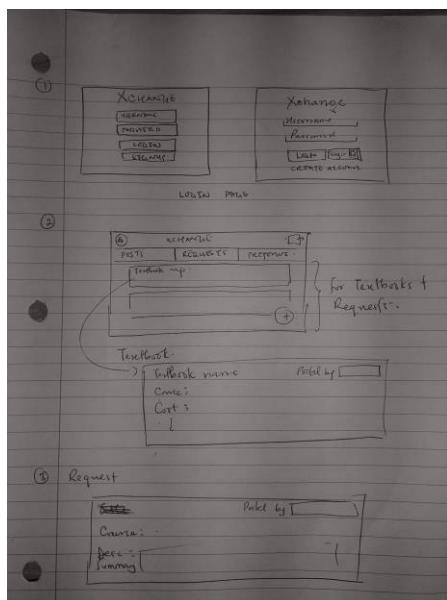 ①
XCHANGE
USERNAME
PASSWORD
LOGIN
SIGNUP
Xchange
Username
Password
Login
CREATE ACCOUNT
LOGIN PAGE
②
XCHANGE
POSTS REQUESTS
Textbook
For Textbooks +
Requests.
Textbook
Textbook name Posted by
Course:
Cost:
③ Request
Posted by
Course:
Desc:
Summary